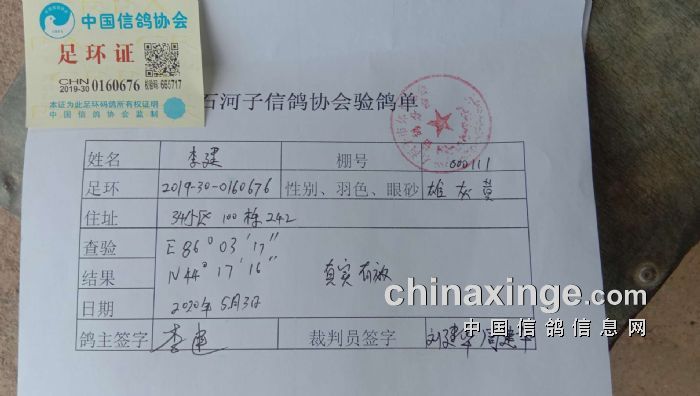 中国信鸽协会
足环证
CHN
2019-30 0160676 校验码: 665717
本证为此足环码鸽所有权证明
中国信鸽协会监制
石河子信鸽协会验鸽单
姓名 李建 棚号 000111
足环 2019-30-0160676 性别、羽色、眼砂 雄 灰 黄
住址 34小区 100栋 242
查验 E 86° 03′ 17″
结果 N 44° 17′ 16″ 真实有效
日期 2020年5月3日
鸽主签字 李建 裁判员签字 刘建军
chinaxinge.com
中国信鸽信息网